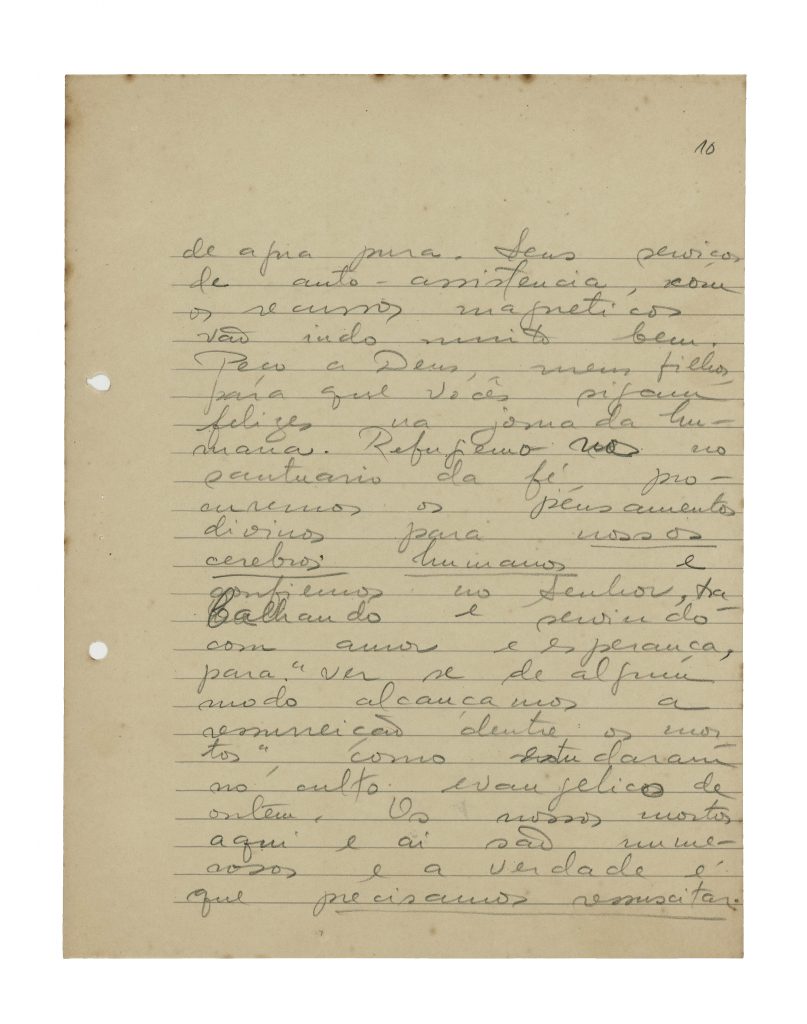 10
de agua pura. Seus serviços
de auto-assistencia, com
os recursos magneticos
vão indo muito bem.
Peço a Deus, meus filhos,
para que vocês sigam
felizes na jornada hu-
mana. Refugiemo nos no
santuario da fé, pro-
curemos os pensamentos
divinos para nossos
cerebros humanos e
confiemos no Senhor, tra-
balhando e servindo
com amor e esperança,
para "ver se de algum
modo alcançamos a
ressurreição dentre os mor-
tos" como estudaram
no culto evangelico de
ontem. Os nossos mortos
aqui e aí são nume-
rosos e a verdade é
que precisamos ressuscitar.